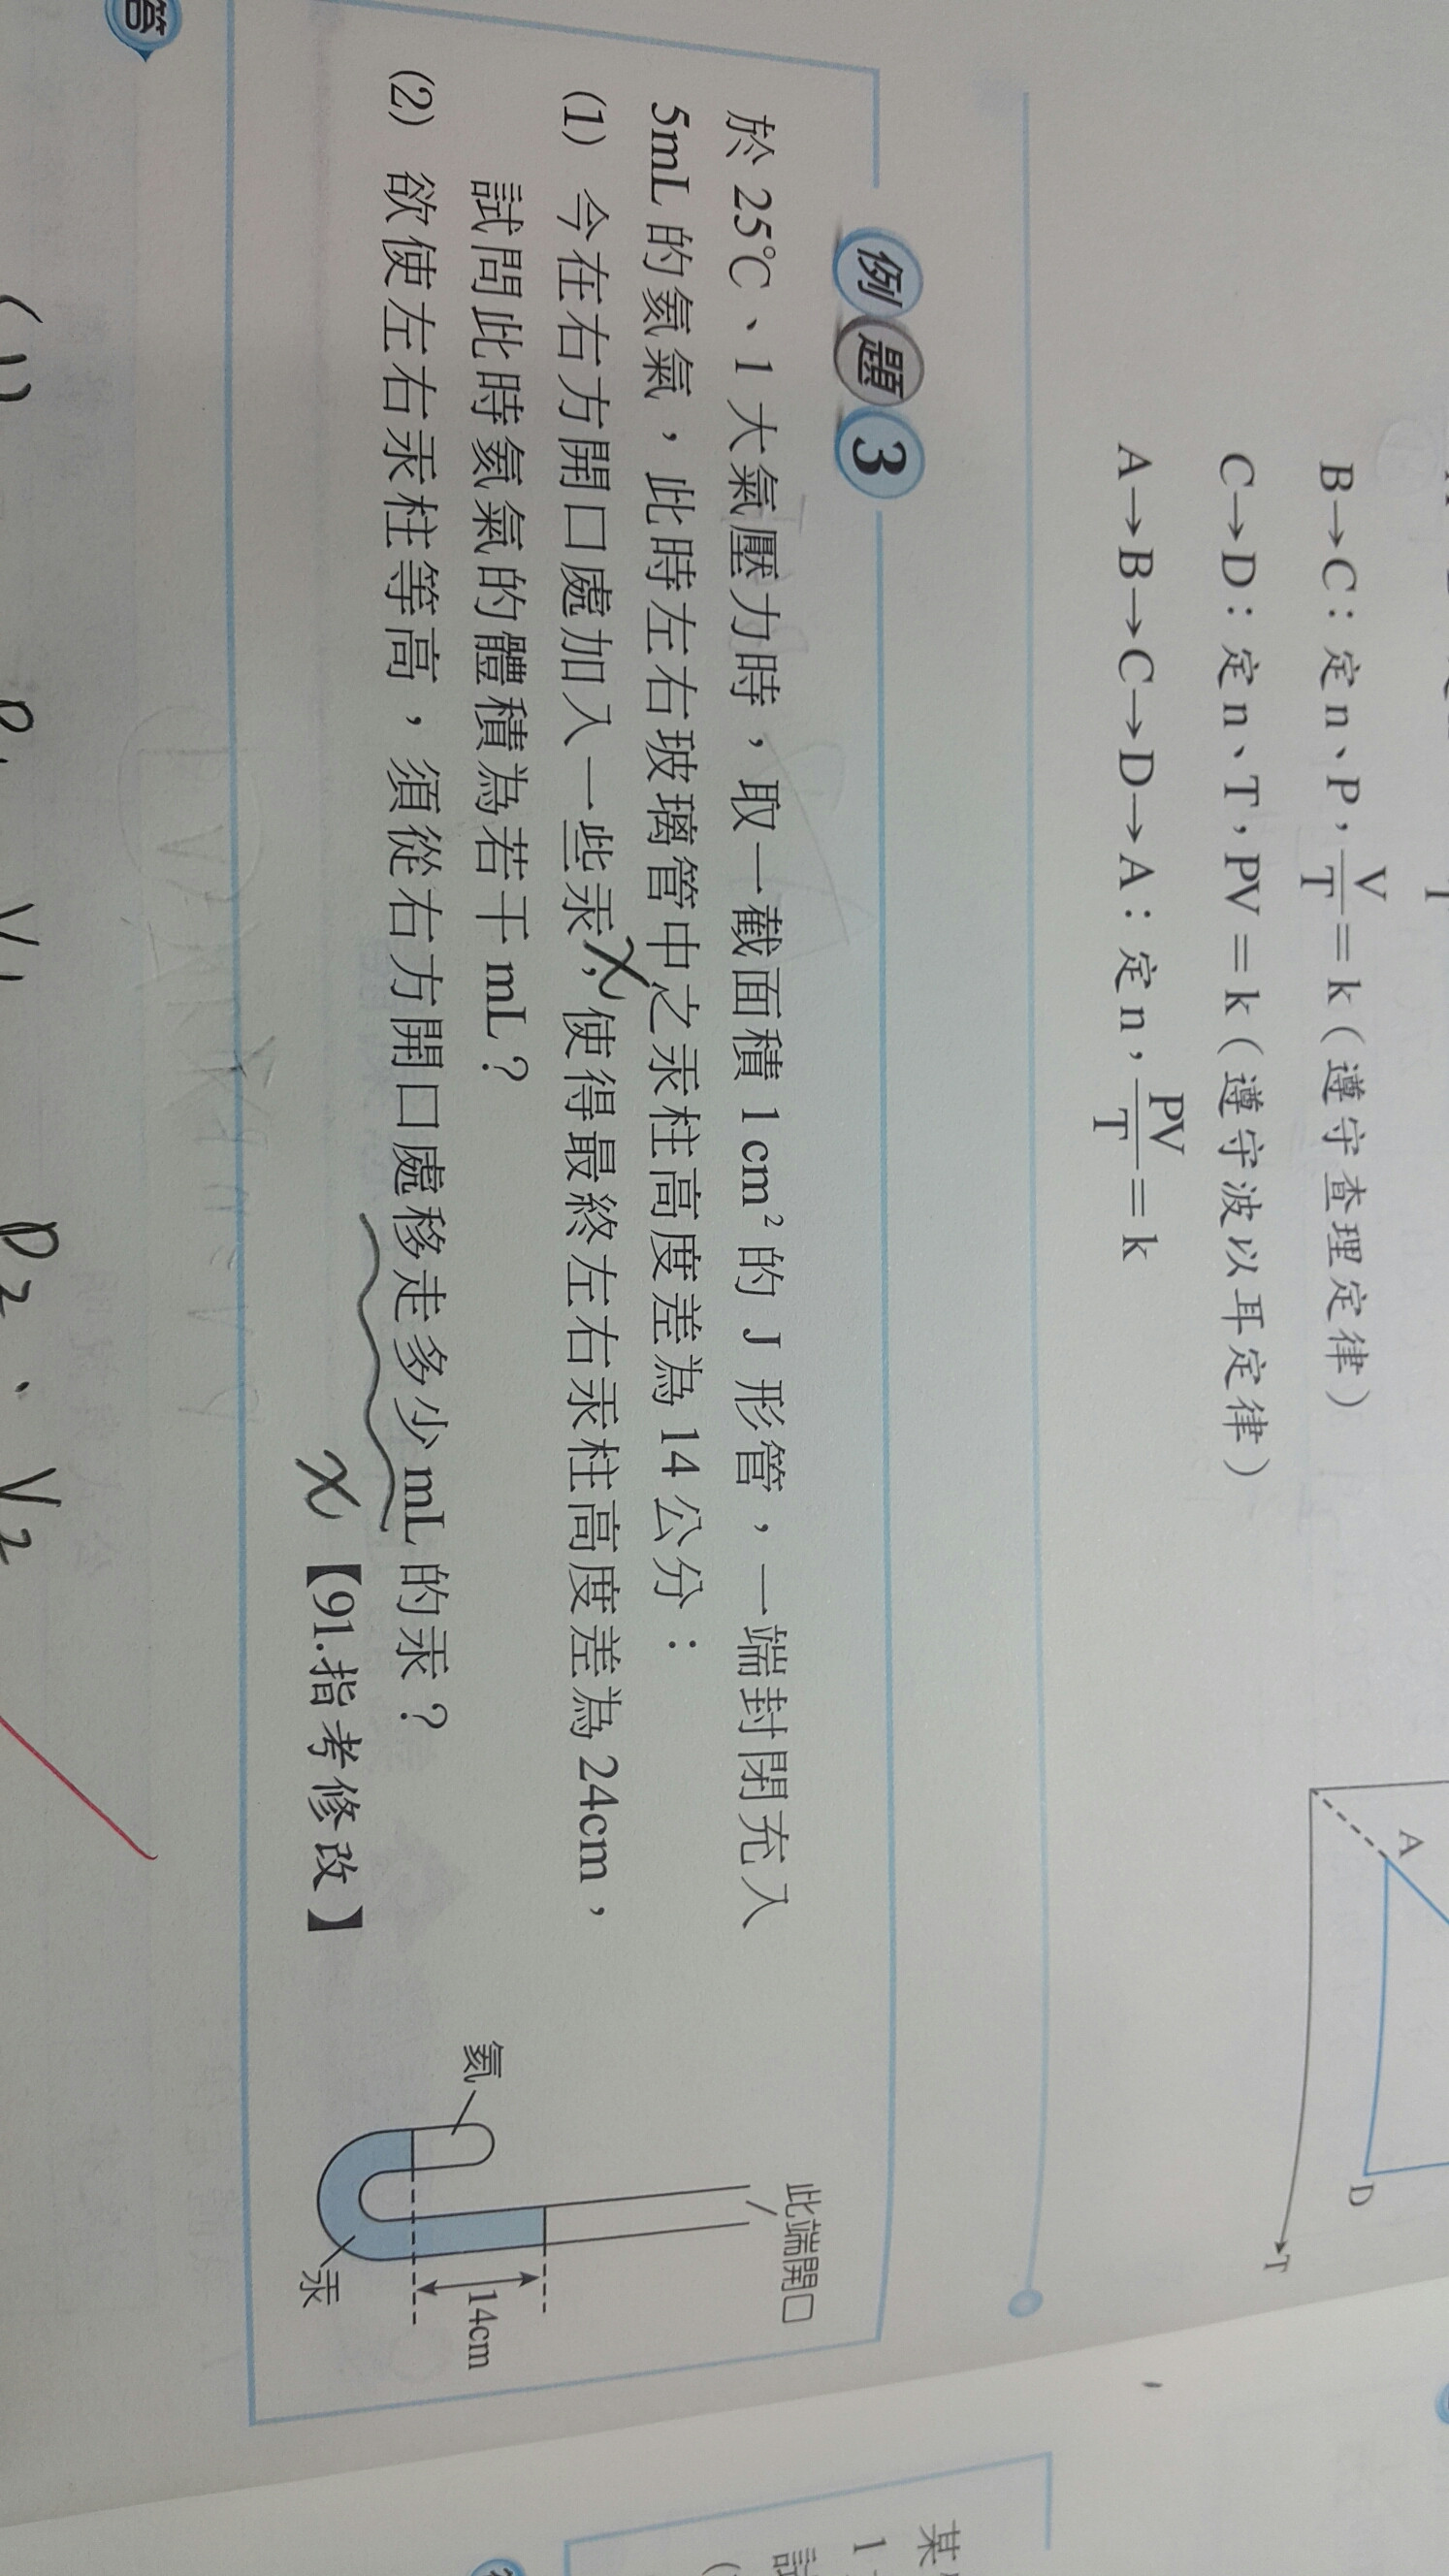 B→C：定 n、P，V/T＝k（遵守查理定律）
C→D：定 n、T，PV＝k（遵守波以耳定律）
A→B→C→D→A：定 n，PV/T＝k
A
D
T
例題3
於 25℃、1 大氣壓力時，取一截面積 1 cm² 的 J 形管，一端封閉充入
5mL 的氦氣，此時左右玻璃管中之汞柱高度差為 14 公分：
(1) 今在右方開口處加入一些汞，使得最終左右汞柱高度差為 24cm，
試問此時氦氣的體積為若干 mL？
(2) 欲使左右汞柱等高，須從右方開口處移走多少 mL 的汞？
x
【91.指考修改】
此端開口
氦
14cm
汞
答
(1)
P₁ V₁ P₂ V₂
某
1
試